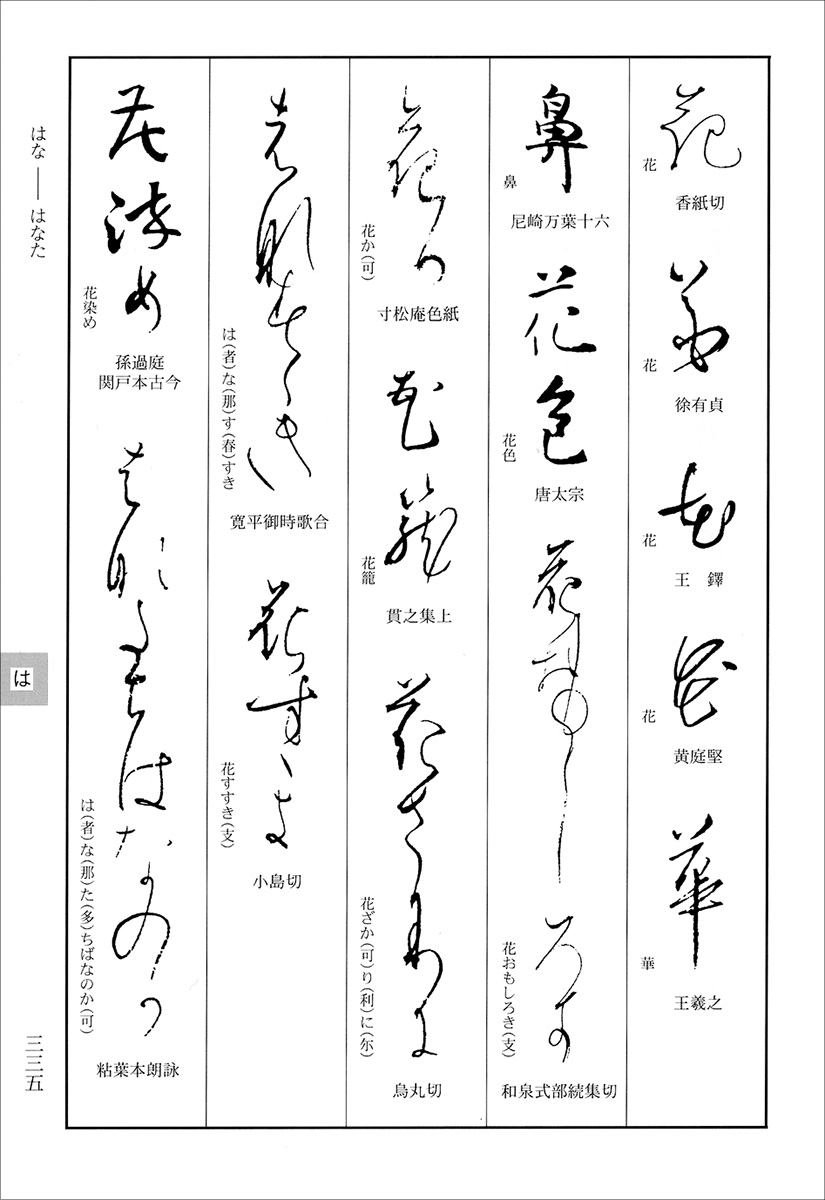 はな――はなた
は
三三五
花
香紙切
花
徐有貞
花
王　鐸
花
黄庭堅
華
王羲之
鼻
尼崎万葉十六
花色
唐太宗
花おもしろき(支)
和泉式部続集切
花か(可)
寸松庵色紙
花籠
貫之集上
花ざか(可)り(利)に(尓)
烏丸切
は(者)な(那)す(春)すき
寛平御時歌合
花すすき(支)
小島切
花染め
孫過庭
関戸本古今
は(者)な(那)た(多)ちばなのか(可)
粘葉本朗詠